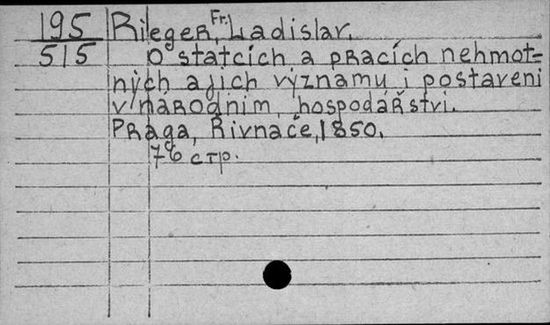 195 Rieger, Fr. Ladislar.
515 O statcích a pracích nehmot=
ných a jich významu i postaveni
v národnim hospodářstvi.
Praga, Řivnače, 1850.
76 стр.